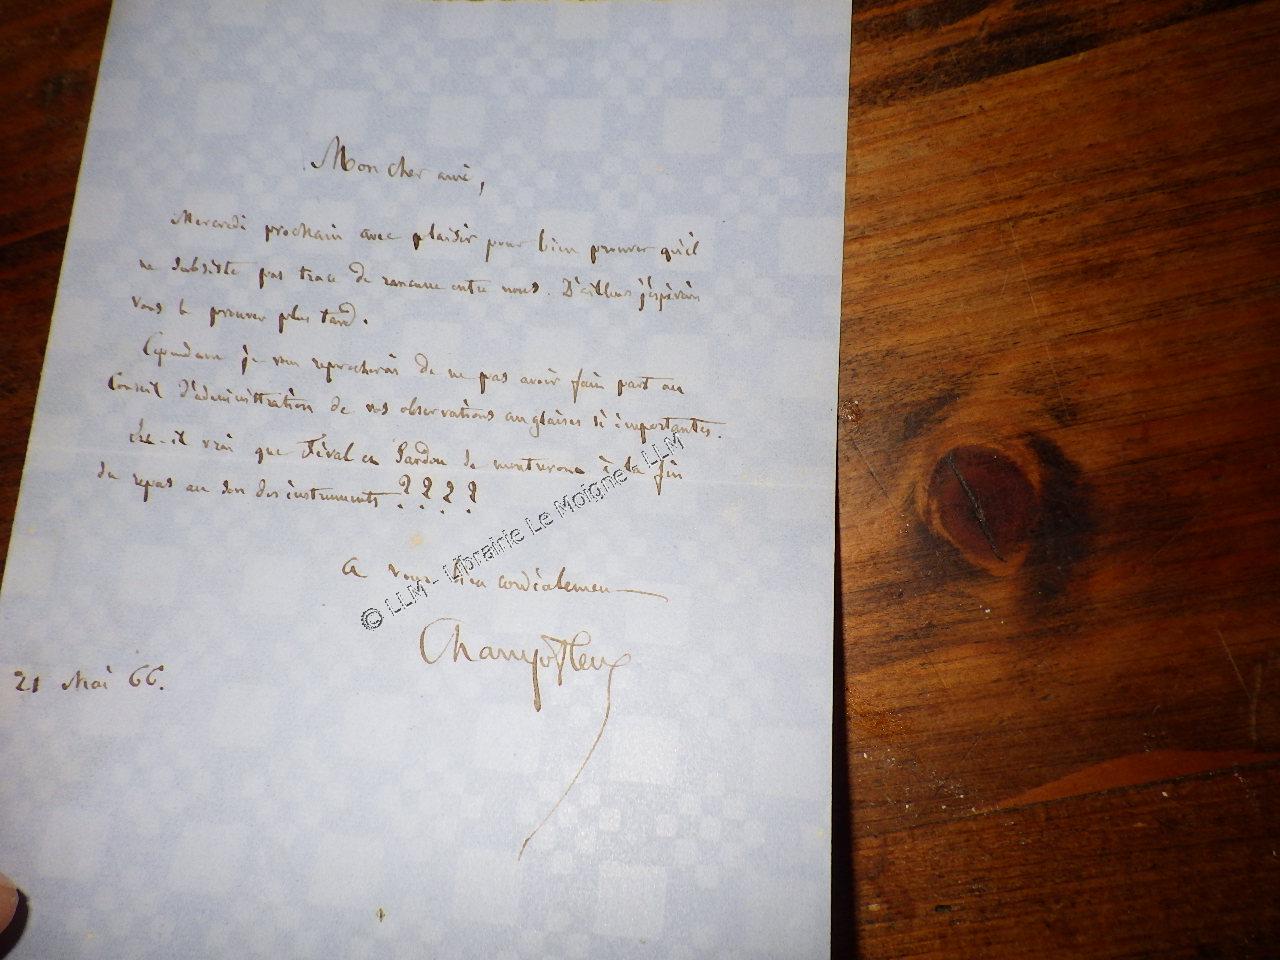 Mon cher ami,
Mercredi prochain avec plaisir pour bien prouver qu'il
ne subsiste pas trace de rancune entre nous. D'ailleurs j'espérais
vous le prouver plus tard.
Cependant je vous reprocherai de ne pas avoir fait part au
Conseil d'administration de vos observations anglaises si importantes.
Est-il vrai que Féval et Sardou se montreront à la fin
du repas au son des instruments ????
© LLM - Librairie Le Moigne LLM
A vous bien cordialement
Champfleury
21 Mai 66.